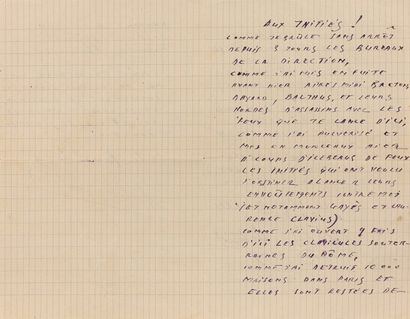 AUX INITIÉS !
COMME JE BRÛLE SANS ARRÊT
DEPUIS 3 JOURS LES BUREAUX
DE LA DIRECTION,
COMME J'AI MIS EN FUITE
AVANT HIER APRÈS MIDI
BALTHUS, ET LEURS
HORDES D'ASSASSINS AVEC LES
FEUX QUE JE LANCE D'ICI,
COMME J'AI PULVERISÉ ET
MIS EN MORCEAUX HIER
À COUPS D'ÉCLEBEAUX DE FEUX
LES INITIÉS QUI ONT VOULU
LEURS
ENVOÛTEMENTS CONTRE MOI
(ET NOTAMMENT ET
CLAVIUS)
COMME J'AI OUVERT FOIS
D'ICI LES CLAVICULES SOUTER-
RAINES DU DÔME,
COMME J'AI DETRUIT 10.000
MAISONS DANS PARIS ET
ELLES SONT RESTÉES DE-